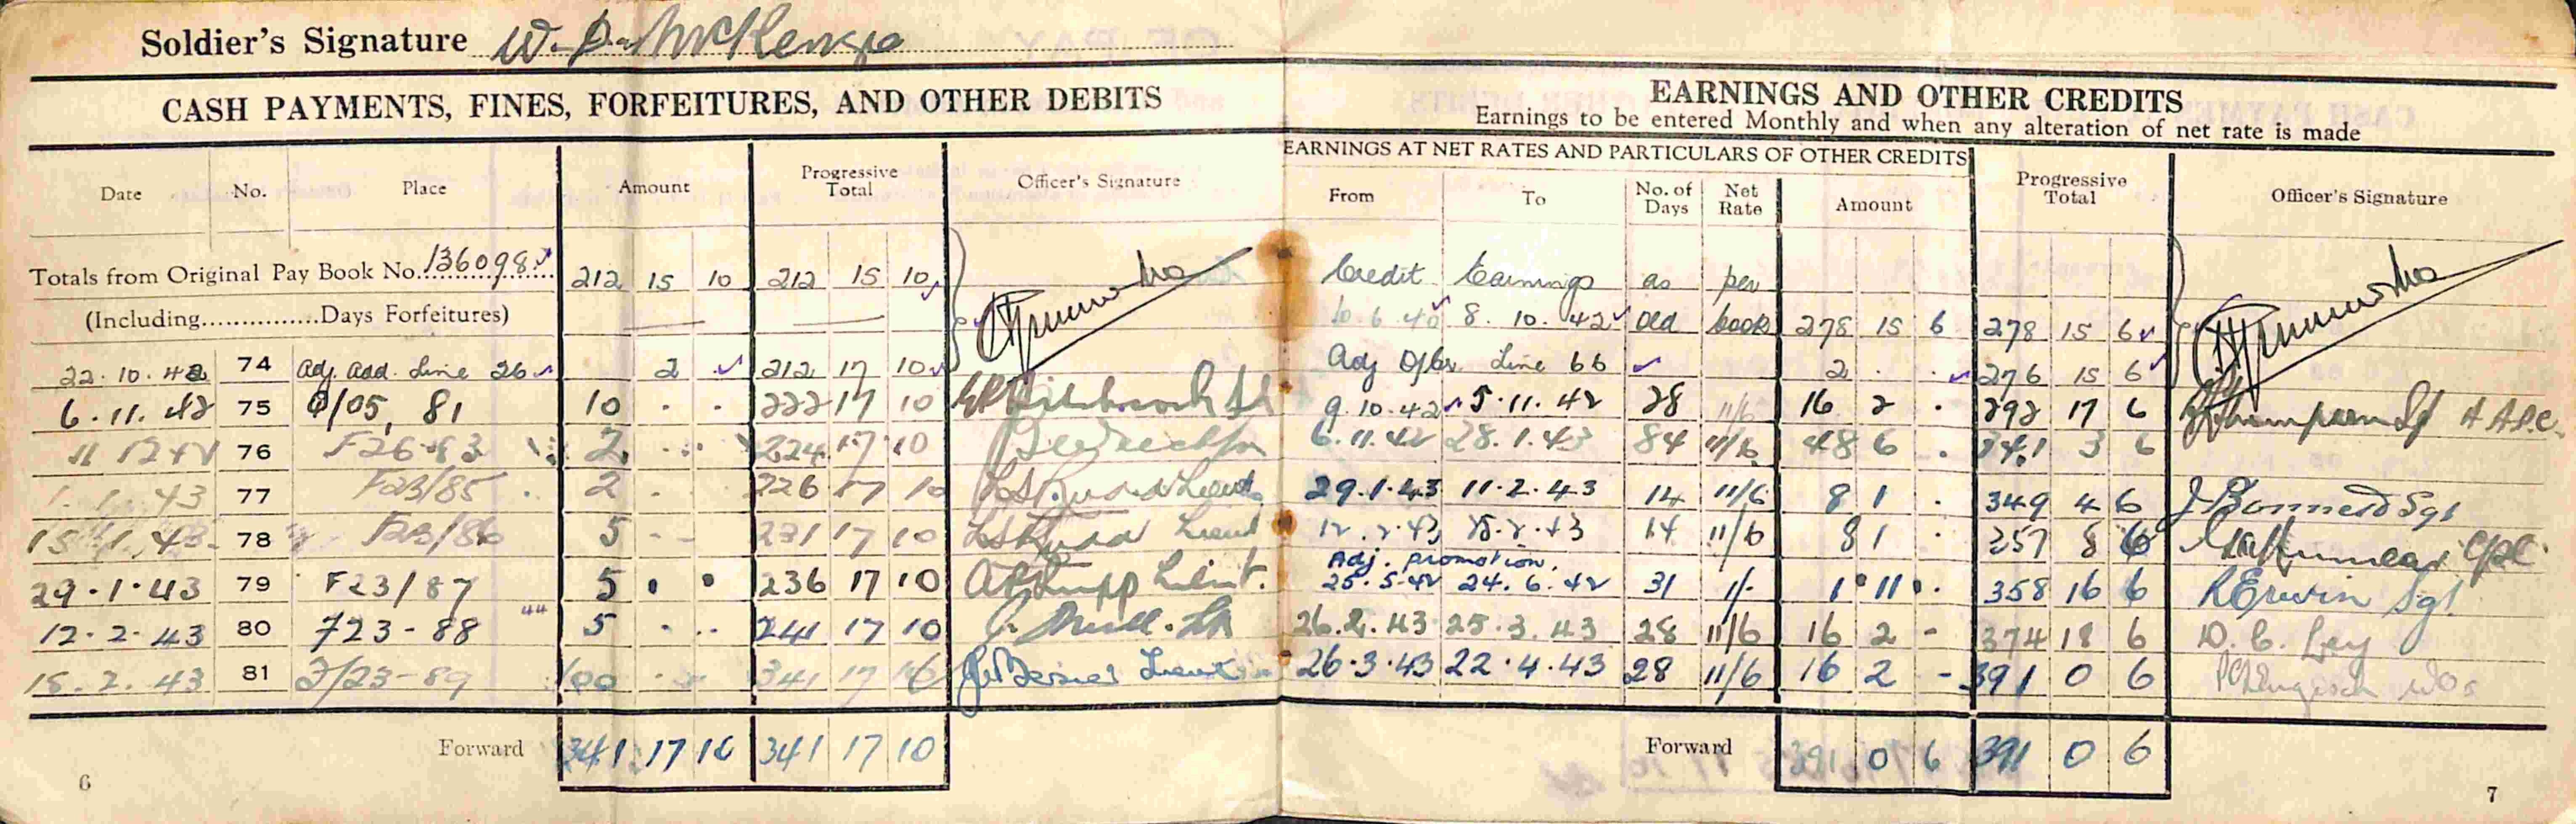 Soldier's Signature W. D. McKenzie
CASH PAYMENTS, FINES, FORFEITURES, AND OTHER DEBITS
Date No. Place Amount Progressive Total Officer's Signature
Totals from Original Pay Book No. 136098 212 15 10 212 15 10
(Including...............Days Forfeitures)
22.10.42 74 Adj. Add. Line 26 2 212 17 10
6.11.42 75 81 10 . . 222 17 10
11 12 42 76 F26-83 2 . . 224 17 10
1.1.43 77 F23/85 2 . 226 17 10 Lieut
15.1.43 78 F23/86 5 - - 231 17 10 Lieut
29.1.43 79 F23/87 5 . . 236 17 10 Lieut.
12.2.43 80 723-88 5 . .. 241 17 10
15.2.43 81 23-89 100 . - 341 17 10 Lieut
Forward 341 17 10 341 17 10
6
EARNINGS AND OTHER CREDITS
Earnings to be entered Monthly and when any alteration of net rate is made
EARNINGS AT NET RATES AND PARTICULARS OF OTHER CREDITS
From To No. of Days Net Rate Amount Progressive Total Officer's Signature
Credit Earnings as per
8.10.42 old book 278 15 6 278 15 6
Adj Line 66 2 . . 276 15 6
9.10.42 5.11.42 28 11/6 16 2 . 292 17 6 A.A.P.C.
6.11.42 28.1.43 84 11/6 48 6 . 341 3 6
29.1.43 11.2.43 14 11/6 8 1 . 349 4 6 Sgt
12.2.43 25.2.43 14 11/6 8 1 . 357 5 6
Adj. promotion.
25.5.42 24.6.42 31 1/- 1 11 . 358 16 6 R Erwin Sgt
26.2.43 25.3.43 28 11/6 16 2 - 374 18 6
26.3.43 22.4.43 28 11/6 16 2 - 391 0 6
Forward 391 0 6 391 0 6
7